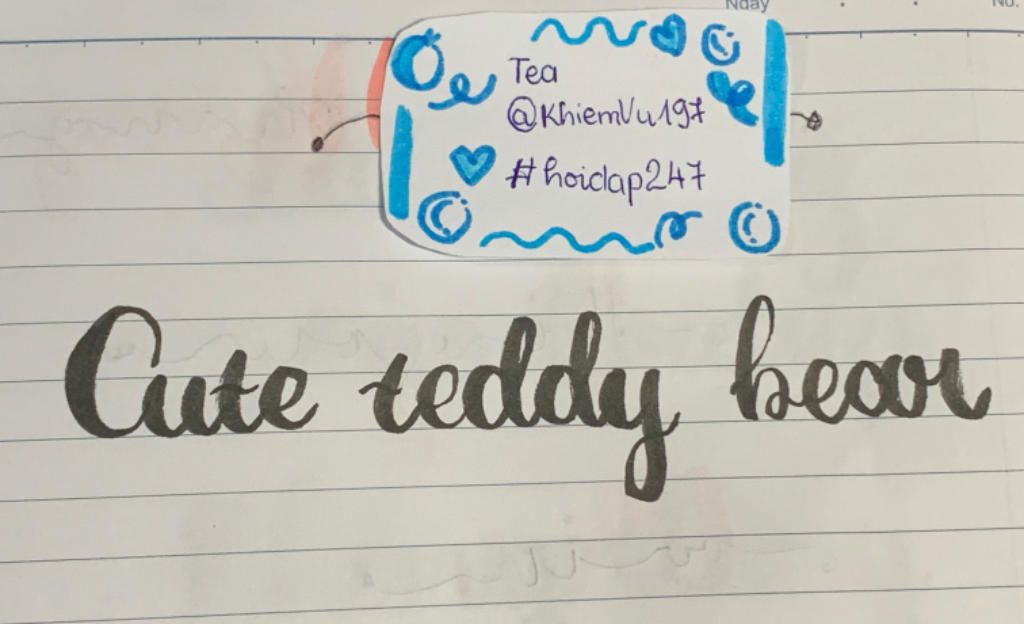 Nday
No.
Tea
@KhiemVu197
#hoidap247
Cute teddy bear